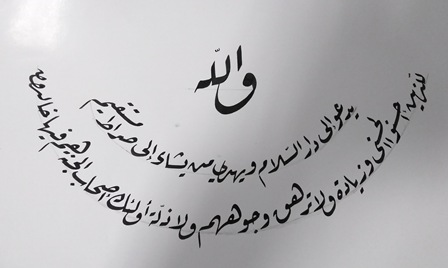 والله
يدعوا إلى دار السلام ويهدي من يشاء إلى صراط مستقيم
للذين احسنوا الحسنى وزيادة ولا ترهق وجوههم ولا ذلة أولئك اصحاب الجنة هم فيها خالدون